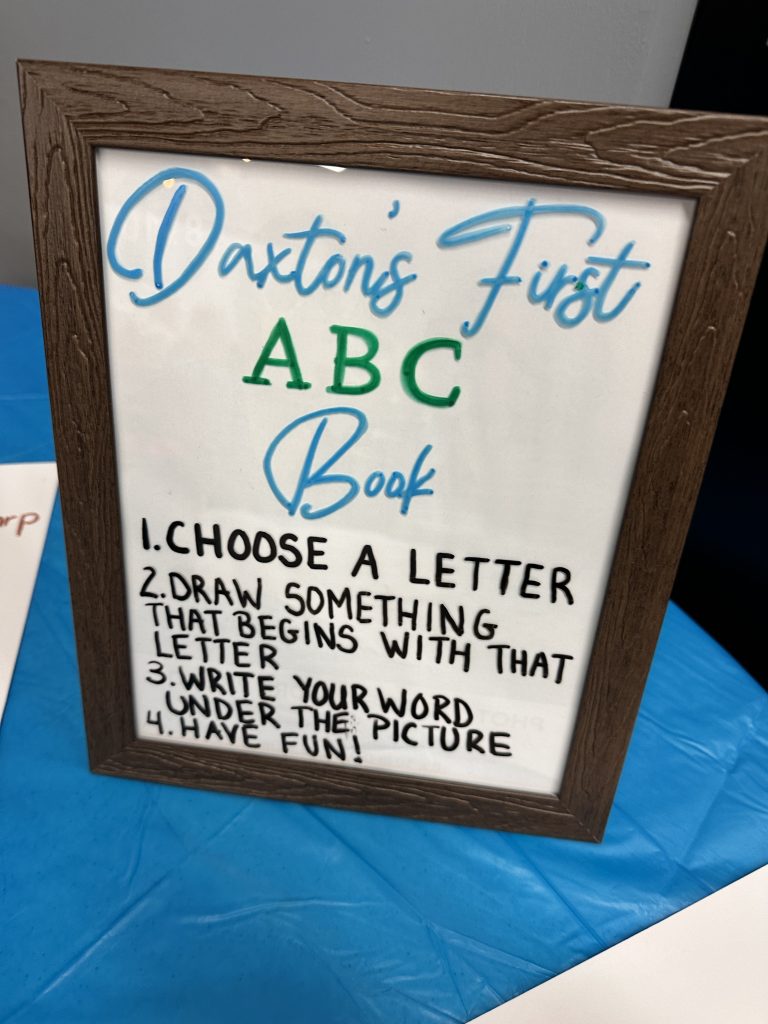 Daxton's First
ABC
Book
1. CHOOSE A LETTER
2. DRAW SOMETHING
THAT BEGINS WITH THAT
LETTER
3. WRITE YOUR WORD
UNDER THE PICTURE
4. HAVE FUN!